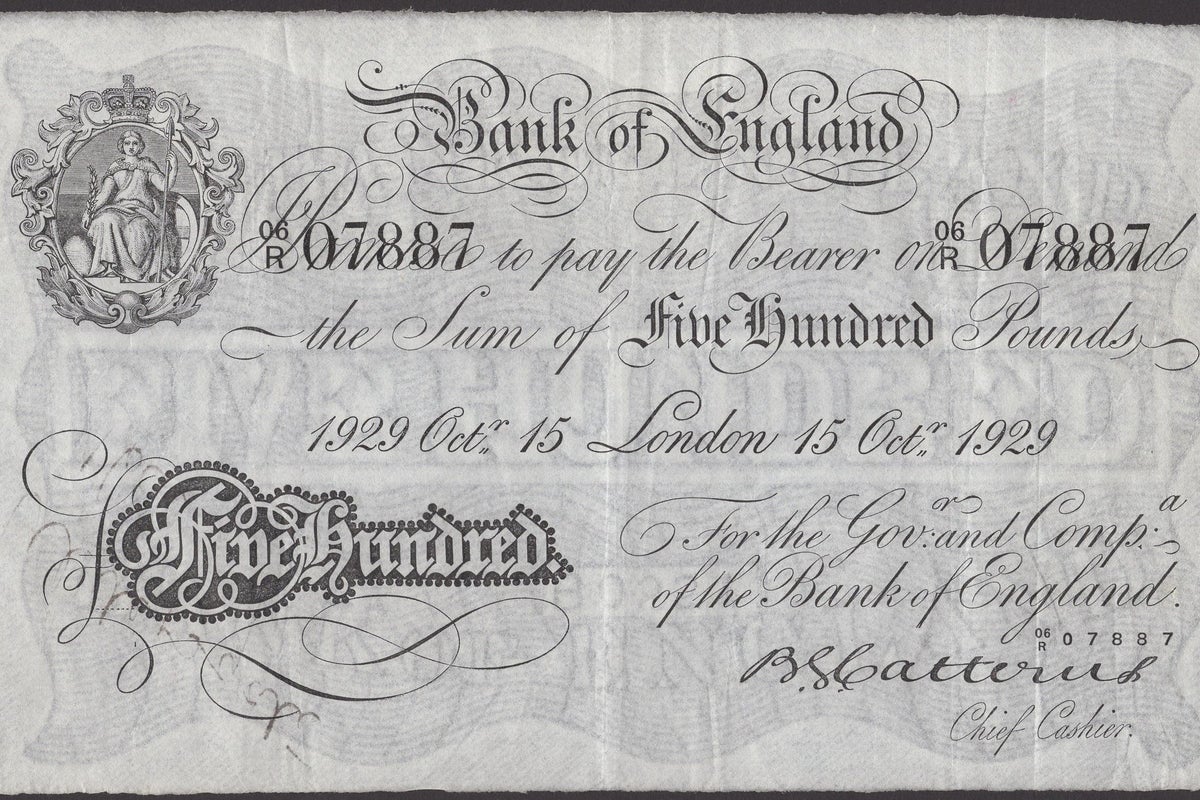 Bank of England
06
R 07887 to pay the Bearer on Demand 06
R 07887
the Sum of Five Hundred Pounds
1929 Octr 15 London 15 Octr 1929
£ Five Hundred
For the Govr: and Compa:
of the Bank of England.
06
R 07887
B.G. Catterns
Chief Cashier.